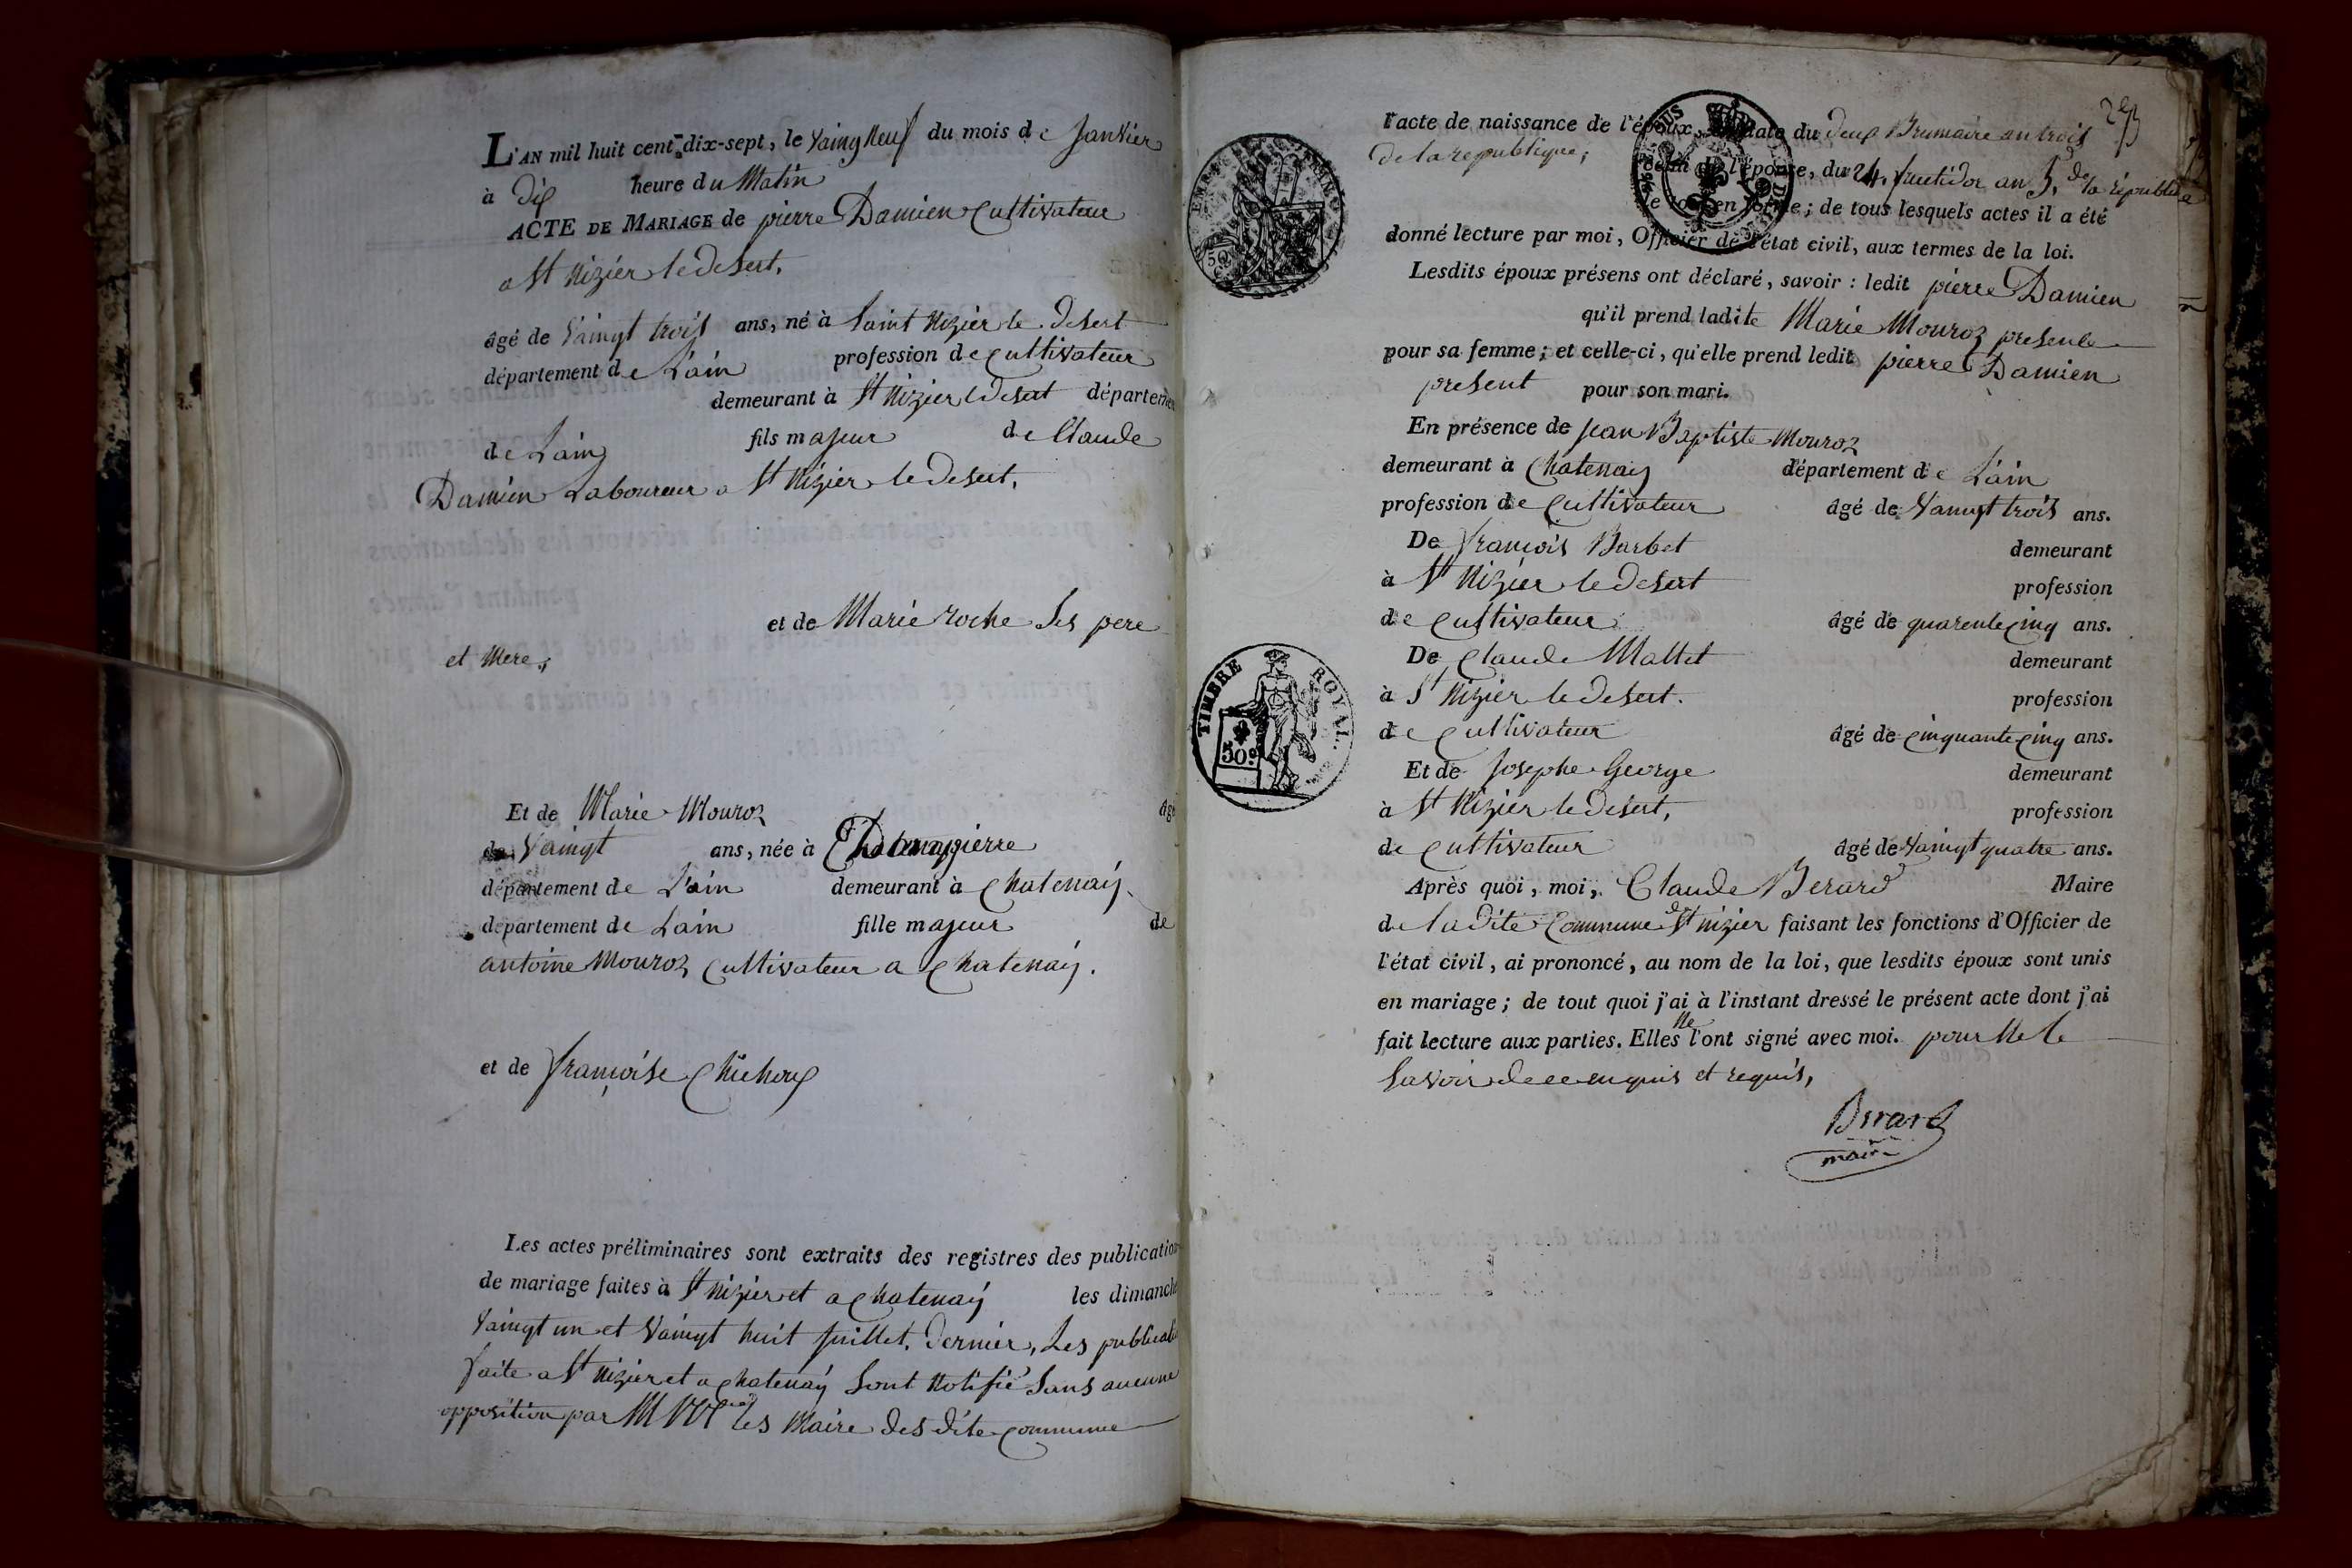 L'AN mil huit cent dix-sept, le vaingt Neuf du mois de Janvier
à dix heure du Matin
ACTE DE MARIAGE de pierre Damien Cultivateur
a St Nizier le desert,
âgé de vaingt trois ans, né à Saint Nizier le desert
département de L'ain profession de Cultivateur
demeurant à St Nizier le desert départemen
de Lain fils majeur de Claude
Damien Laboureur a St Nizier le desert,
et de Marie roche Ses pere
et Mere,
Et de Marie Mouroz âgé
de vaingt ans, née à
département de L'ain demeurant à Chatenay
département de Lain fille majeur de
antoine Mouroz Cultivateur a Chatenay.
et de françoise Chichoux
Les actes préliminaires sont extraits des registres des publication
de mariage faites à St Nizier et a Chatenay les dimanche
vaingt un et vaingt huit Juillet. dernier, Les publicati
faite a St Nizier et a Chatenay Sont Notifié Sans aucune
opposition par les Maire des dite Commune
l'acte de naissance de l'époux, date du deux Brumaire an trois
de la republique;
celui de l'épouse, du 24. fructidor an 5. de la république
le tout en forme; de tous lesquels actes il a été
donné lecture par moi, Officier de l'état civil, aux termes de la loi.
Lesdits époux présens ont déclaré, savoir : ledit pierre Damien
qu'il prend ladite Marie Mouroz presente
pour sa femme; et celle-ci, qu'elle prend ledit pierre Damien
present pour son mari.
En présence de Jean Baptiste Mouroz
demeurant à Chatenay département de L'ain
profession de Cultivateur âgé de vaingt trois ans.
De françois Barbet demeurant
à St Nizier le desert profession
de Cultivateur âgé de quarente Cinq ans.
De Claude Mallet demeurant
à St Nizier le desert. profession
de Cultivateur âgé de Cinquante Cinq ans.
Et de Josephe George demeurant
à St Nizier le desert, profession
de Cultivateur âgé de vaingt quatre ans.
Après quoi, moi, Claude Berard Maire
de ladite Commune de St nizier faisant les fonctions d'Officier de
l'état civil, ai prononcé, au nom de la loi, que lesdits époux sont unis
en mariage; de tout quoi j'ai à l'instant dressé le présent acte dont j'ai
fait lecture aux parties. Elles Ne l'ont signé avec moi. pour Ne le
Savoir de ce enquis et requis,
Berard
maire
TIMBRE ROYAL.
50c